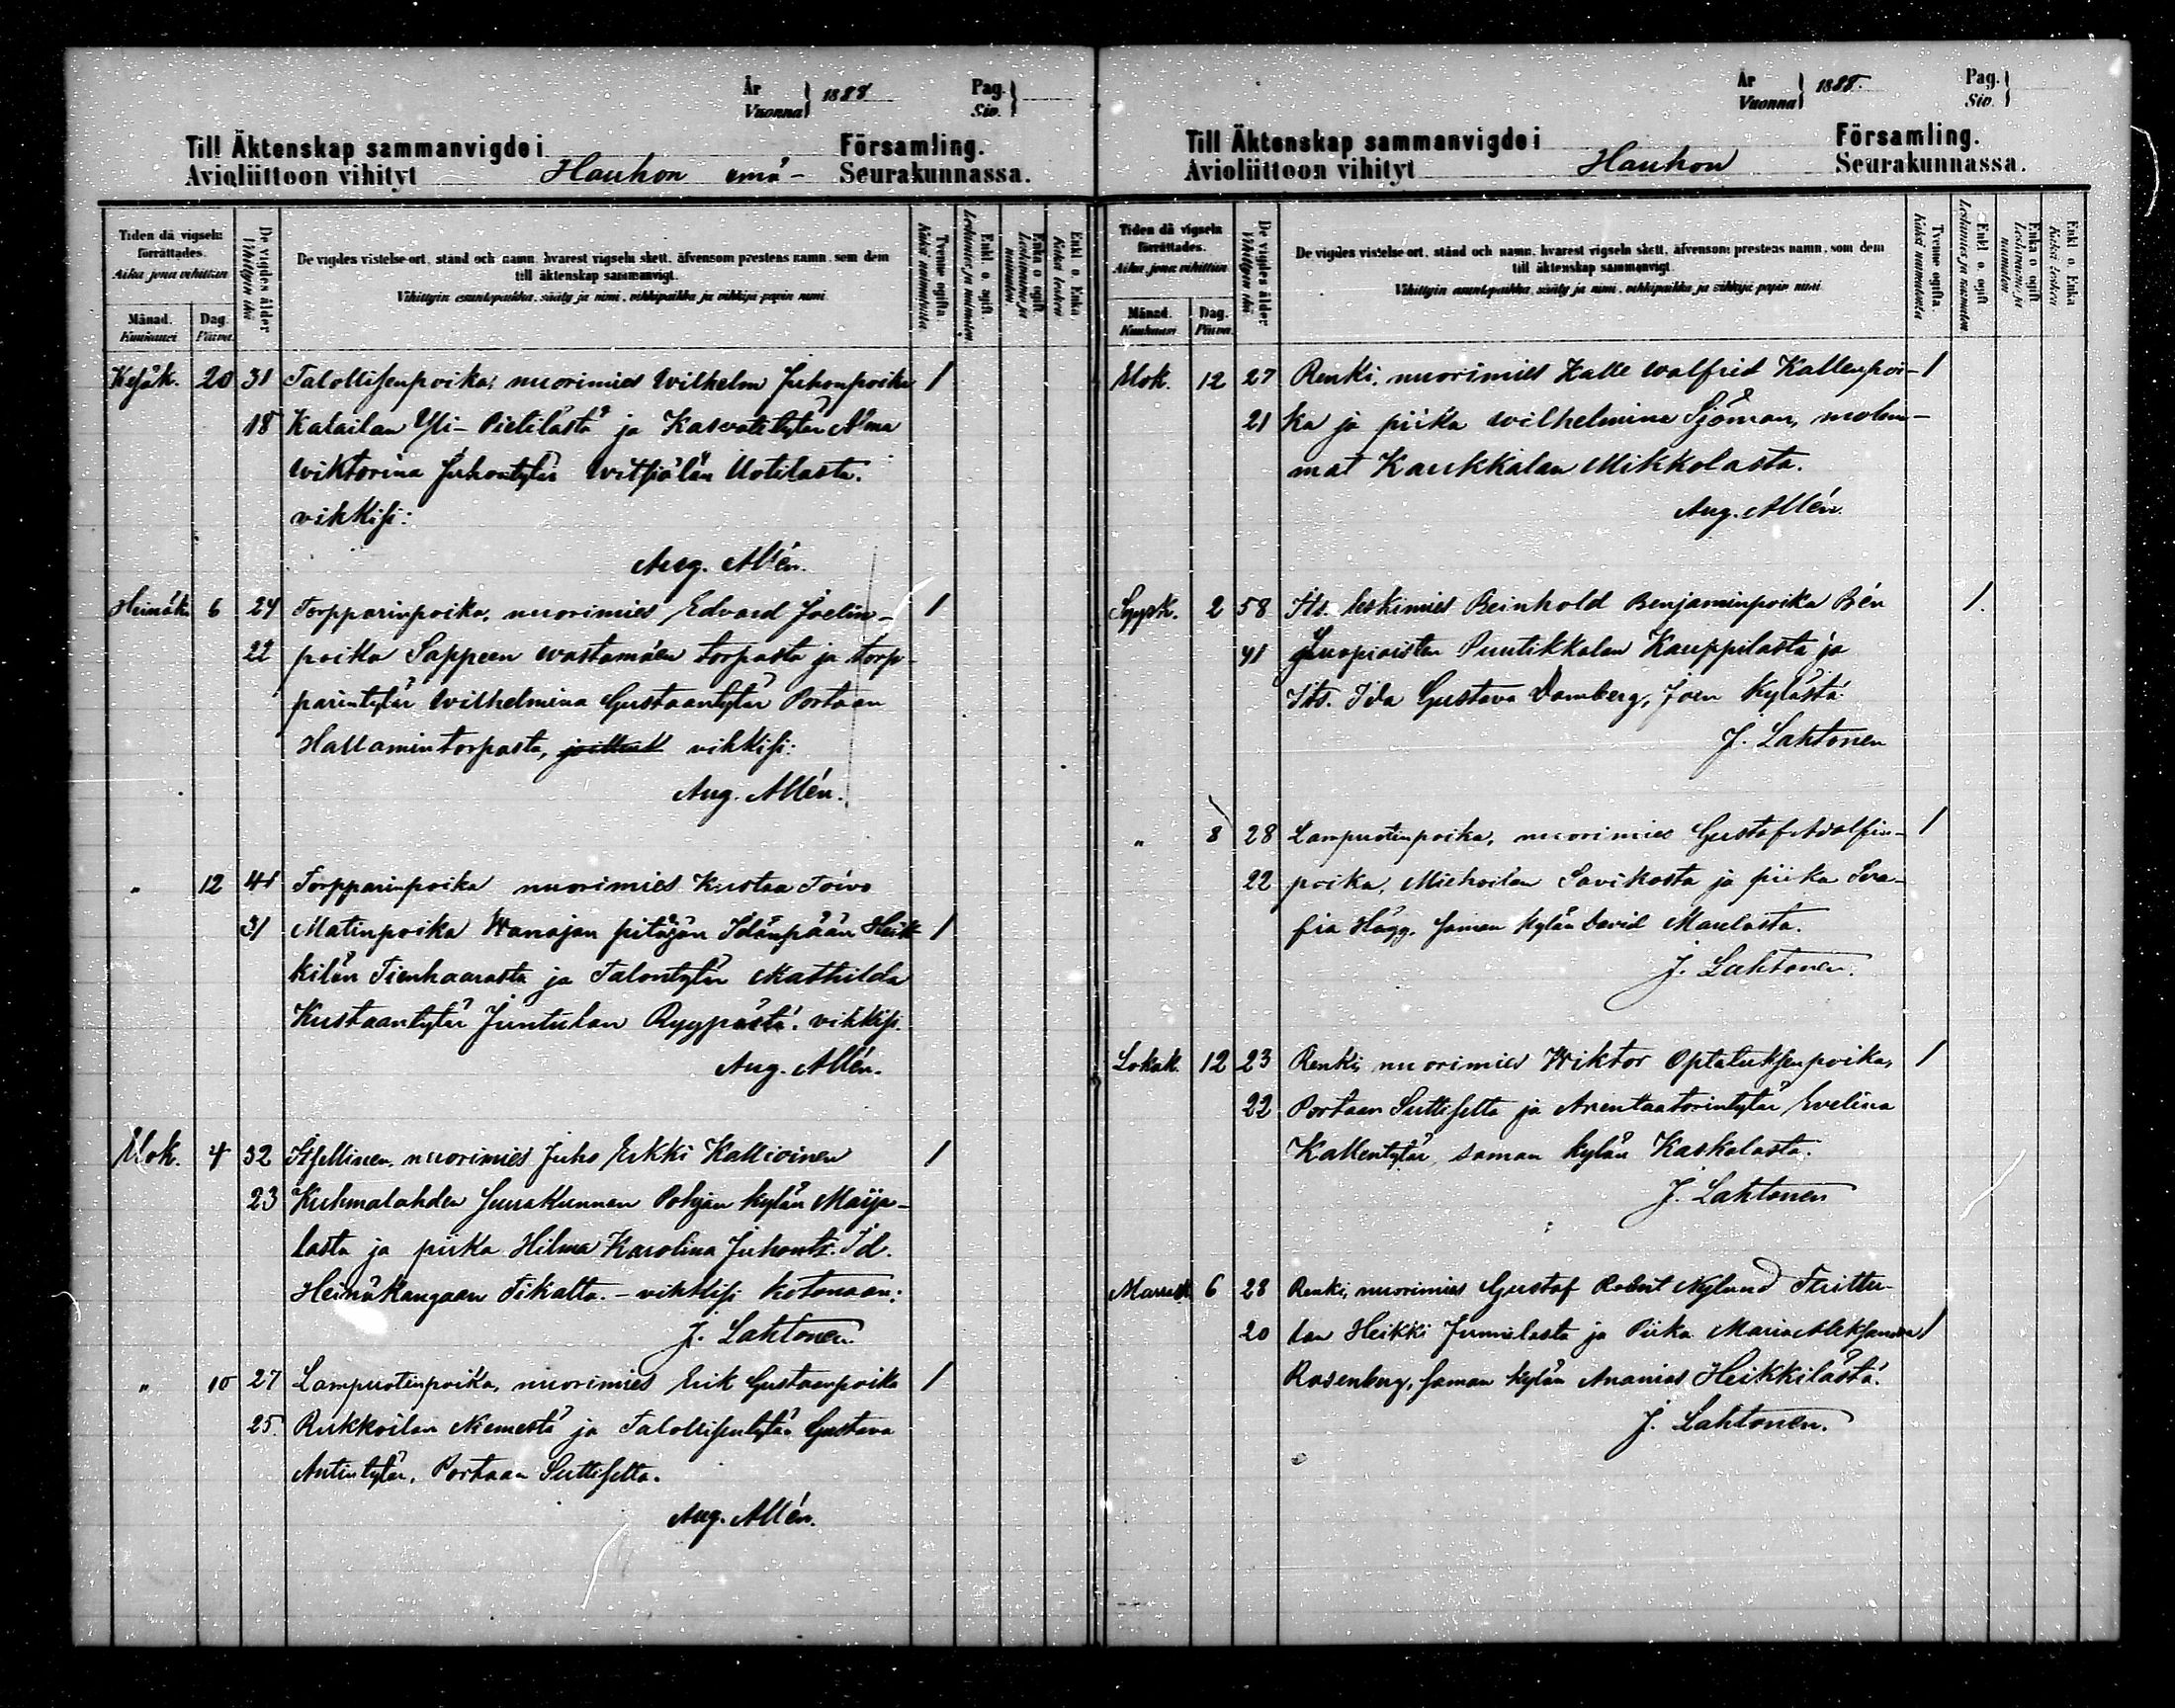 År
Vuonna } 1888
Pag.
Siv. }
Till Äktenskap sammanvigde i Församling.
Avioliittoon vihityt Hauhon emä- Seurakunnassa.
Tiden då vigseln förrättades.
Aika, jona vihittiin
Månad.
Kuukausi
Dag.
Päivä
De vigdes ålder
Vihittyin ikä
De vigdes vistelse-ort, stånd och namn, hvarest vigseln skett, äfvensom prestens namn, som dem
till äktenskap sammanvigt.
Vihittyin asuntopaikka, sääty ja nimi, vihkipaikka ja vihkijä-papin nimi.
Tvenne ogifta.
Kaksi naimatonta
Enkl. o. ogift.
Leskimies ja naimaton
Enka o. ogift.
Leskivaimo ja naimaton
Enkl. o. Enka
Kaksi leskeä
Kesäk. 20 31 Talollisenpoika, nuorimies Wilhelm Juhonpoika 1
18 Katailan Yli-Pietilästä ja Kasvatitytär Alma
Wiktorina Juhontytär Witsiälän Uotilasta.
vihkisi:
Aug. Allén.
Heinäk. 6 24 Torpparinpoika, nuorimies Edvard Joelin- 1
22 poika Sappeen Wastamäen torpasta ja torp-
parintytär Wilhelmina Gustaantytär Portaan
Hallamin torpasta, vihkisi:
Aug. Allén.
" 12 41 Torpparinpoika nuorimies Kustaa Toivo
31 Matinpoika Wanajan pitäjän Idänpään Heik- 1
kilän Tienhaarasta ja Talontytär Mathilda
Kustaantytär Juntulan Ryypästä. vihkisi.
Aug. Allén.
Elok. 4 32 Itsellinen, nuorimies Juho Erkki Kallioinen 1
23 Kuhmalahden Seurakunnan Pohjan kylän Maija-
lasta ja piika Hilma Karolina Juhontr. Id.
Heinäkangaan Tikalta. - vihkisi kotonaan:
J. Lahtonen.
" 10 27 Lampuotinpoika, nuorimies Erik Gustaanpoika 1
25. Rukkoilan Niemestä ja Talollisentytär Gustava
Antintytär, Portaan Suttiselta.
Aug. Allén.
År
Vuonna } 1888.
Pag.
Siv. }
Till Äktenskap sammanvigde i Församling.
Avioliittoon vihityt Hauhon Seurakunnassa.
Tiden då vigseln förrättades.
Aika, jona vihittiin
Månad.
Kuukausi
Dag.
Päivä
De vigdes ålder
Vihittyin ikä
De vigdes vistelse-ort, stånd och namn, hvarest vigseln skett, äfvensom prestens namn, som dem
till äktenskap sammanvigt.
Vihittyin asuntopaikka, sääty ja nimi, vihkipaikka ja vihkijä-papin nimi.
Tvenne ogifta.
Kaksi naimatonta
Enkl. o. ogift.
Leskimies ja naimaton
Enka o. ogift
Leskivaimo ja naimaton
Enkl. o. Enka
Kaksi leskeä
Elok. 12 27 Renki, nuorimies Kalle Walfrid Kallenpoi- 1
21 ka ja piika Wilhelmina Sjöman, molem-
mat Kaukkalan Mikkolasta.
Aug. Allén.
Syysk. 2 58 Its. leskimies Reinhold Benjaminpoika Bén 1.
41 Luopioisten Puutikkalan Kauppilasta ja
Its. Ida Gustava Damberg, Joen Kylästä.
J. Lahtonen
" 8 28 Lampuotinpoika, nuorimies Gustaf Adolfin- 1
22 poika, Miehoilan Savikosta ja piika Sera-
fia Hägg, saman kylän David Maulasta.
J. Lahtonen.
Lokak. 12 23 Renki, nuorimies Wiktor Optatuksenpoika, 1
22 Portaan Suttiselta ja Arentaatorintytär Evelina
Kallentytär, saman kylän Kaskalasta.
J. Lahtonen
Marrask. 6 28 Renki, nuorimies Gustaf Robert Nylund Thittu-
20 lan Heikki Junnilasta ja Piika Maria Aleksandra 1
Rosenberg, saman kylän Ananias Heikkilästä.
J. Lahtonen.